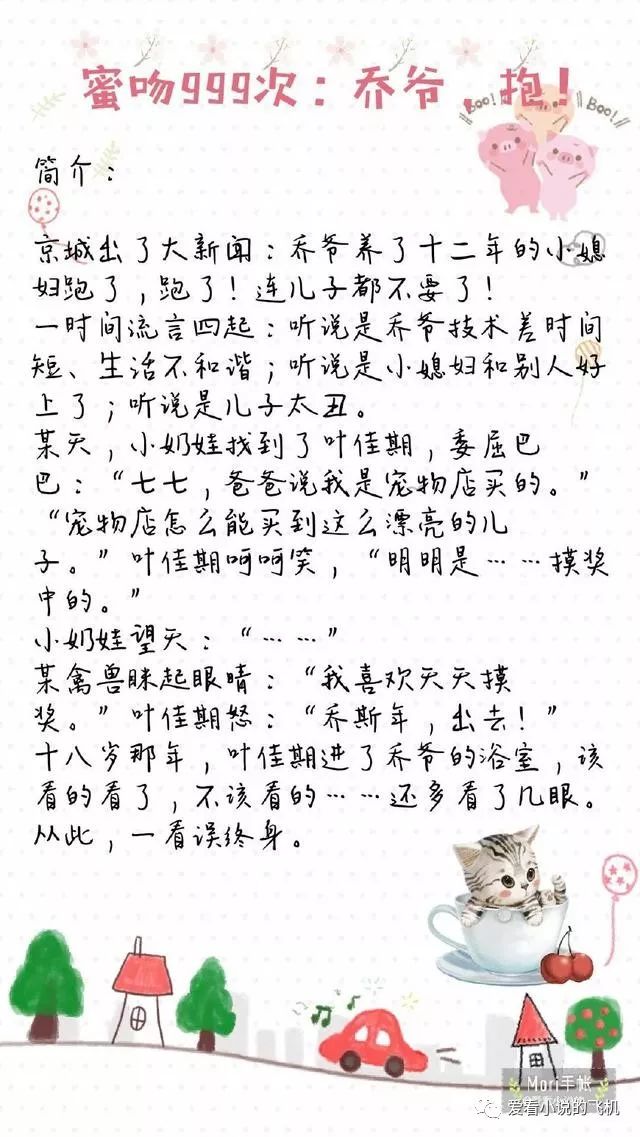 蜜吻999次：乔爷，抱！
Boo!
Boo!
简介：
京城出了大新闻：乔爷养了十二年的小媳
妇跑了，跑了！连儿子都不要了！
一时间流言四起：听说是乔爷技术差时间
短、生活不和谐；听说是小媳妇和别人好
上了；听说是儿子太丑。
某天，小奶娃找到了叶佳期，委屈巴
巴：“七七，爸爸说我是宠物店买的。”
“宠物店怎么能买到这么漂亮的儿
子。”叶佳期呵呵笑，“明明是……摸奖
中的。”
小奶娃望天：“……”
某禽兽眯起眼睛：“我喜欢天天摸
奖。”叶佳期怒：“乔斯年，出去！”
十八岁那年，叶佳期进了乔爷的浴室，该
看的看了，不该看的……还多看了几眼。
从此，一看误终身。
Mori手帐
爱看小说的飞机